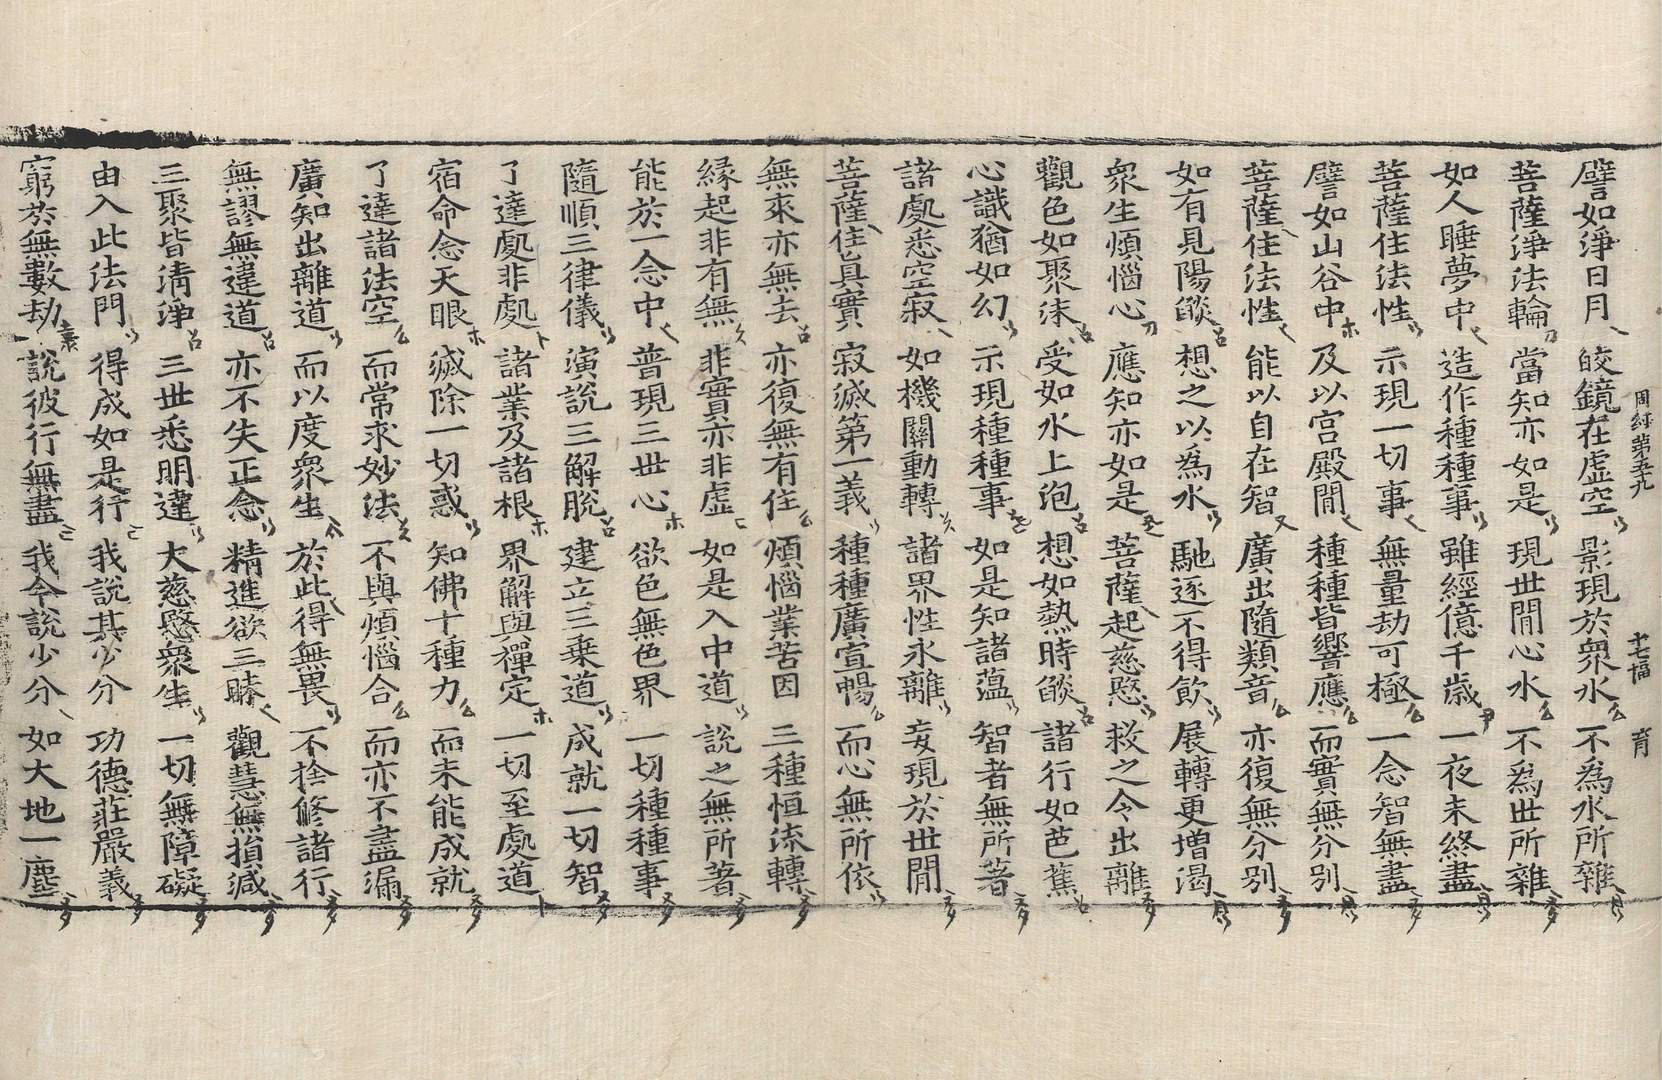 周經第五十九 十七幅 育
譬如淨日月 皎鏡在虛空 影現於衆水 不為水所雜
菩薩淨法輪 當知亦如是 現世間心水 不為世所雜
如人睡夢中 造作種種事 雖經億千歲 一夜未終盡
菩薩住法性 示現一切事 無量劫可極 一念智無盡
譬如山谷中 及以宫殿間 種種皆響應 而實無分別
菩薩住法性 能以自在智 廣出隨類音 亦復無分別
如有見陽燄 想之以為水 馳逐不得飲 展轉更增渴
衆生煩惱心 應知亦如是 菩薩起慈愍 救之令出離
觀色如聚沫 受如水上泡 想如熱時燄 諸行如芭蕉
心識猶如幻 示現種種事 如是知諸蕰 智者無所著
諸處悉空寂 如機關動轉 諸界性永離 妄現於世間
菩薩住真實 寂滅第一義 種種廣宣暢 而心無所依
無來亦無去 亦復無有住 煩惱業苦因 三種恒流轉
緣起非有無 非實亦非虛 如是入中道 說之無所著
能於一念中 普現三世心 欲色無色界 一切種種事
隨順三律儀 演說三解脫 建立三乗道 成就一切智
了達處非處 諸業及諸根 界解與禪定 一切至處道
宿命念天眼 滅除一切惑 知佛十種力 而未能成就
了達諸法空 而常求妙法 不與煩惱合 而亦不盡漏
廣知出離道 而以度衆生 於此得無畏 不捨修諸行
無謬無違道 亦不失正念 精進欲三昧 觀慧無損減
三聚皆清淨 三世悉明達 大慈愍衆生 一切無障礙
由入此法門 得成如是行 我說其少分 功德莊嚴義
窮於無數劫 說彼行無盡 我今說少分 如大地一塵